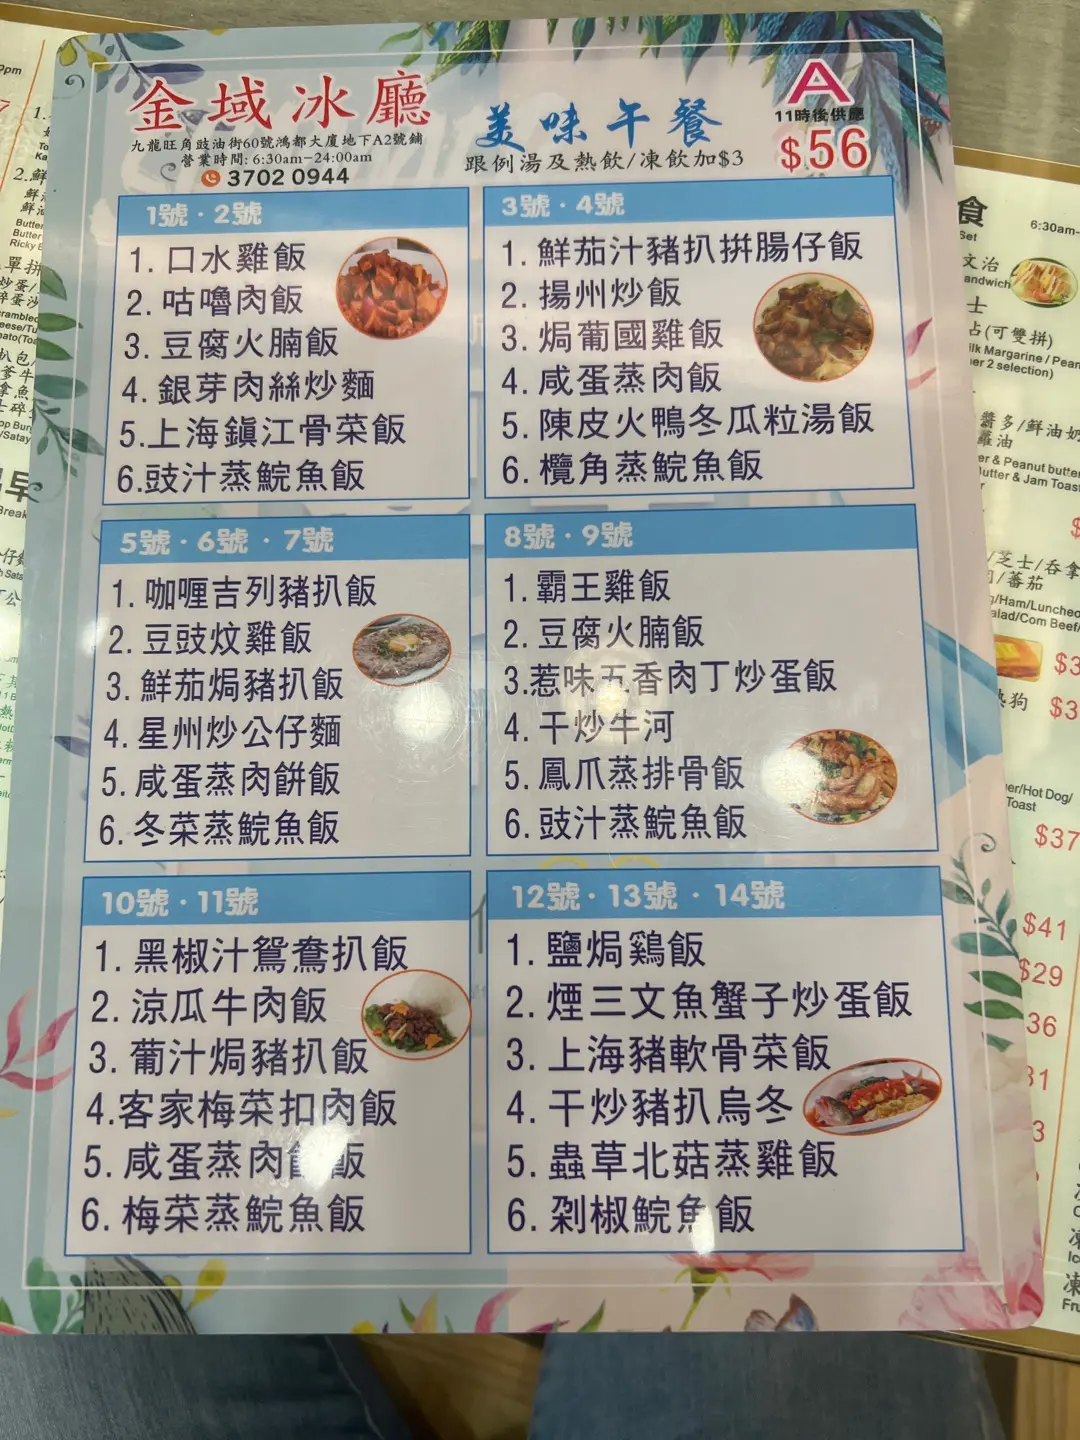 金域冰廳
九龍旺角豉油街60號鴻都大廈地下A2號鋪
營業時間: 6:30am-24:00am
3702 0944
美味午餐
跟例湯及熱飲/凍飲加$3
A
11時後供應
$56
1號·2號
1. 口水雞飯
2. 咕嚕肉飯
3. 豆腐火腩飯
4. 銀芽肉絲炒麵
5.上海鎮江骨菜飯
6.豉汁蒸鯇魚飯
3號·4號
1. 鮮茄汁豬扒拼腸仔飯
2. 揚州炒飯
3. 焗葡國雞飯
4. 咸蛋蒸肉飯
5. 陳皮火鴨冬瓜粒湯飯
6. 欖角蒸鯇魚飯
5號·6號·7號
1. 咖喱吉列豬扒飯
2. 豆豉炆雞飯
3. 鮮茄焗豬扒飯
4. 星州炒公仔麵
5. 咸蛋蒸肉餅飯
6. 冬菜蒸鯇魚飯
8號·9號
1. 霸王雞飯
2. 豆腐火腩飯
3.惹味五香肉丁炒蛋飯
4. 干炒牛河
5. 鳳爪蒸排骨飯
6. 豉汁蒸鯇魚飯
10號·11號
1. 黑椒汁鴛鴦扒飯
2. 涼瓜牛肉飯
3. 葡汁焗豬扒飯
4.客家梅菜扣肉飯
5. 咸蛋蒸肉餅飯
6. 梅菜蒸鯇魚飯
12號·13號·14號
1. 鹽焗鷄飯
2. 煙三文魚蟹子炒蛋飯
3. 上海豬軟骨菜飯
4. 干炒豬扒烏冬
5. 蟲草北菇蒸雞飯
6. 剁椒鯇魚飯
食
6:30am-
Set
文治
andwich
士
占(可雙拼)
ilk Margarine / Pean
er 2 selection)
醬多/鮮油奶
蘿油
er & Peanut butter
utter & Jam Toast
/芝士/吞拿
/蕃茄
g/Ham/Luncheo
alad/Corn Beef/
$3
熱狗 $3
er/Hot Dog/
Toast
$37
$41
$29
36
31
3